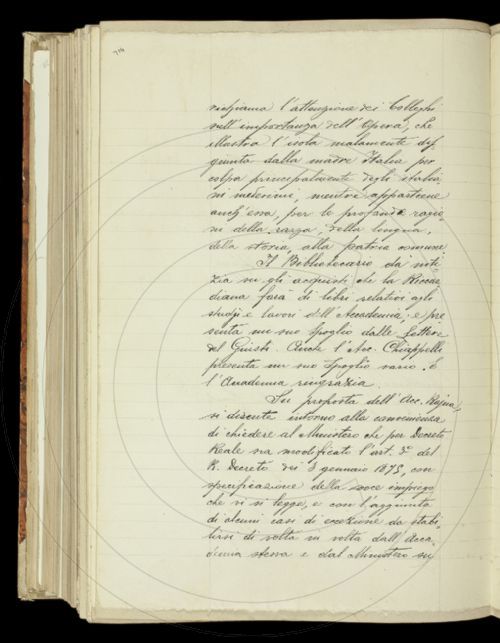 richiama l'attenzione dei Colleghi
sull'importanza dell'Opera, che
illustra l'isola malamente dis
giunta dalla madre Italia per
colpa principalmente degli italia
ni medesimi, mentre appartiene
anch'essa, per le profonde ragio
ni della razza, della lingua,
della storia, alla patria comune
Il Bibliotecario dà noti
zia su gli acquisti che la Riccar
diana farà di libri relativi agli
studj e lavori dell'Accademia; e pre
senta un suo spoglio dalle Lettere
del Giusti. Anche l'Acc. Chiappelli
presenta un suo spoglio vario. E
l'Accademia ringrazia.
Su proposta dell'Acc. Rajna,
si discute intorno alla convenienza
di chiedere al Ministero che per Decreto
Reale sia modificato l'art. 3º del
R. Decreto dei 8 gennaio 1875, con
specificazione della voce impiego
che vi si legge, e con l'aggiunta
di alcuni casi di eccezione da stabi
lirsi di volta in volta dall'Acca
demia stessa e dal Ministero su